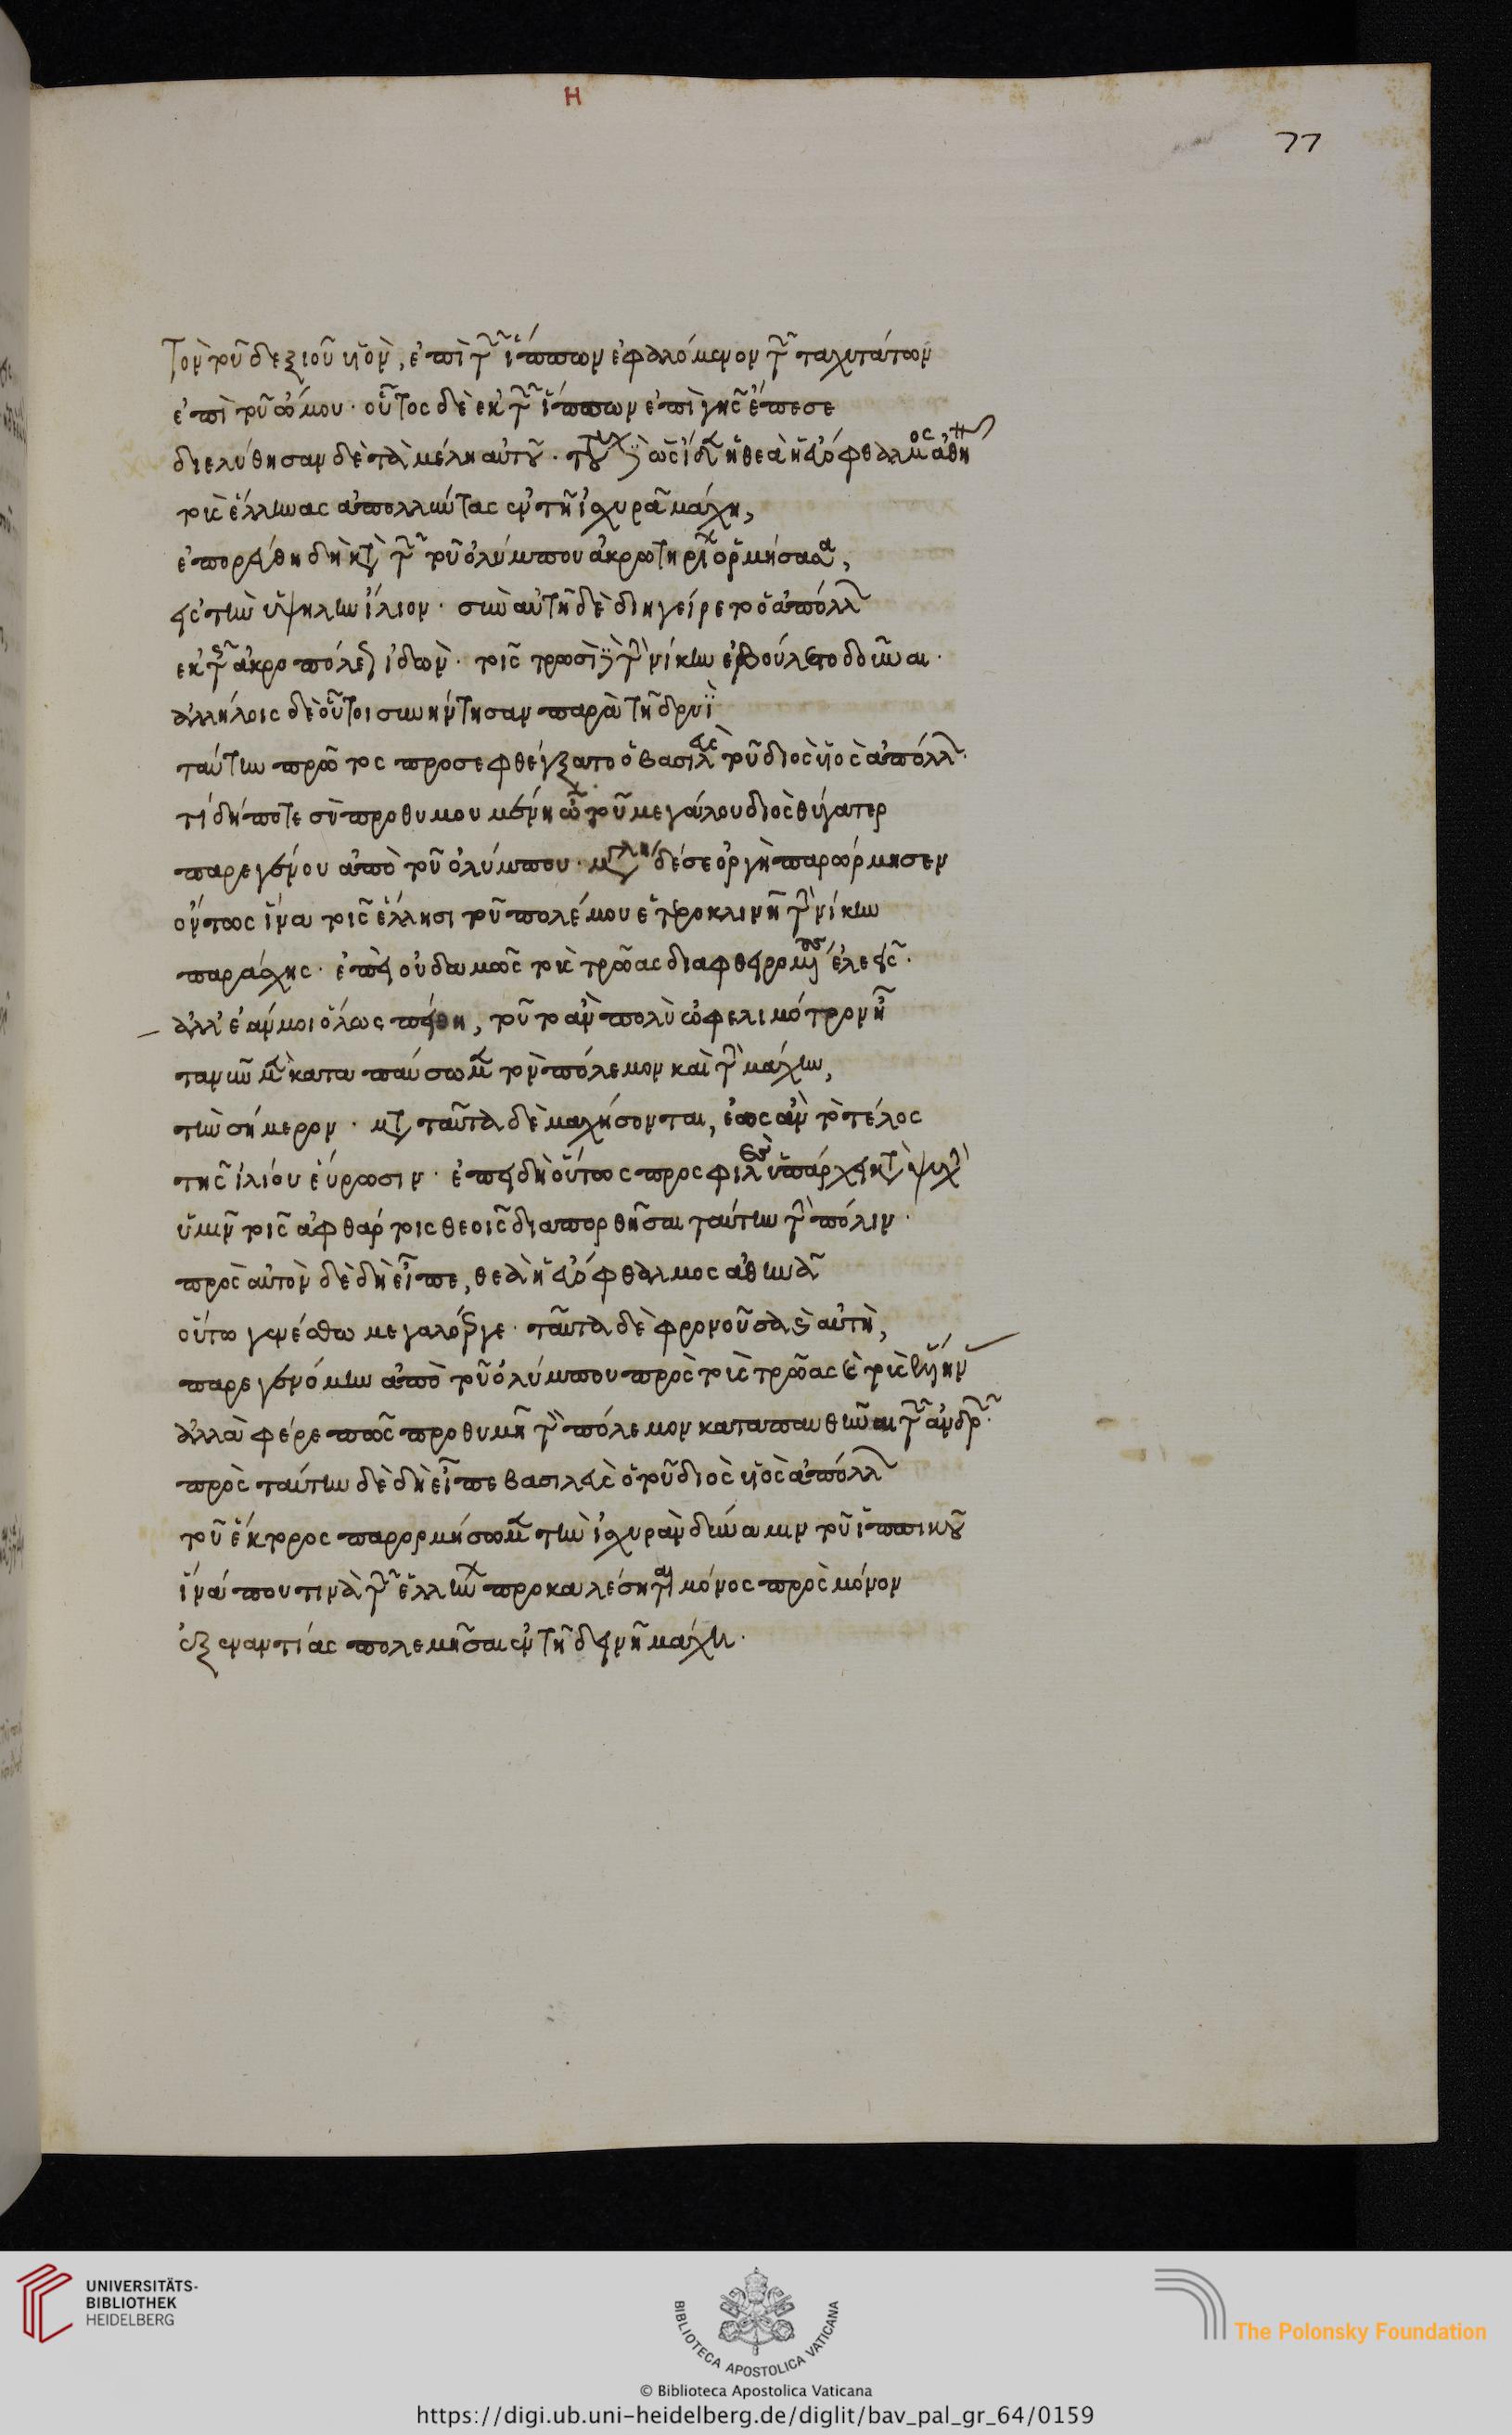 Η
77
Τὸν τοῦ δεξιοῦ υἱὸν, ἐπὶ τῶν ἵππων ἐφαλόμενον τῶν ταχυτάτων
ἐπὶ τοῦ ὤμου · οὗτος δὲ ἐκ τῶν ἵππων ἐπὶ γῆς ἔπεσε
διελύθησαν δὲ τὰ μέλη αὐτοῦ · ὡς ἡ θεὰ ἡ ὀφθαλμος ἀθη
τοὺς ἕλληνας ἀπολλύντας ἐν τῇ ἰσχυρᾶ μάχη,
ἐπορεύθη δὴ κατὰ τῶν τοῦ ὀλύμπου ἀκρωτηρίων ὁρμήσασα,
εἰς τὴν ὑψηλὴν ἴλιον · σὺν αὐτῆ δὲ διηγείρετο ὁ ἀπόλλ
ἐκ τῆς ἀκροπόλεως ἰδὼν · τοῖς τρωσὶ δὲ τὴν νίκην ἐβούλετο δοῦναι ·
ἀλλήλοις δὲ οὗτοι συνήντησαν παρὰ τῆ δρυῒ
ταύτην πρῶτος προσεφθέγξατο ὁ βασιλεὺς τοῦ διὸς υἱὸς ἀπόλλ ·
τί δήποτε σὺ προθυμουμένη ὦ τοῦ μεγάλου διὸς θύγατερ
παρεγένου ἀπὸ τοῦ ὀλύμπου · μεγάλη δέ σε ὀργὴ παρώρμησεν
ὄντως ἵνα τοῖς ἕλλησι τοῦ πολέμου ἑτεροκλινῆ τὴν νίκην
παράσχης · ἐπεὶ οὐδαμῶς τοὺς τρῶας διαφθειρομένους ἐλεεῖς ·
ἀλλ' ἐάν μοι ὅλως πείθη, τοῦτο ἂν πολὺ ὠφελιμότερον ἦ
τανῦν μὲν καταπαύσωμεν τὸν πόλεμον καὶ τὴν μάχην,
τὴν σήμερον · μετὰ ταῦτα δὲ μαχήσονται, ἕως ἂν τὸ τέλος
τῆς ἰλίου εὕρωσιν · ἐπειδὴ οὕτως προσφιλὲς ὑπάρχει κατὰ ψυχὴν
ὑμῖν τοῖς ἀφθάρτοις θεοῖς διαπορθῆσαι ταύτην τὴν πόλιν ·
πρὸς αὐτὸν δὲ δὴ εἶπε, θεὰ ἡ εὐόφθαλμος ἀθηνᾶ
οὕτω γενέσθω μεγαλόεργε · ταῦτα δὲ φρονοῦσα καὶ αὐτὴ,
παρεγενόμην ἀπὸ τοῦ ὀλύμπου πρὸς τοὺς τρῶας καὶ τοὺς ἕλλην
ἀλλὰ φέρε πῶς προθυμῆ τὸν πόλεμον καταπαυθῆναι τῶν ἀνδρῶν ·
πρὸς ταύτην δὲ δὴ εἶπε βασιλεὺς ὁ τοῦ διὸς υἱὸς ἀπόλλ
τοῦ ἕκτορος παρορμήσωμεν τὴν ἰσχυρὰν δύναμιν τοῦ ἱππικοῦ
ἵνά που τινὰ τῶν ἑλλήνων προκαλέσηται μόνος πρὸς μόνον
ἐξεναντίας πολεμῆσαι ἐν τῆ δεινῆ μάχη ·
UNIVERSITÄTS-
BIBLIOTHEK
HEIDELBERG
BIBLIOTECA APOSTOLICA VATICANA
The Polonsky Foundation
© Biblioteca Apostolica Vaticana
https://digi.ub.uni-heidelberg.de/diglit/bav_pal_gr_64/0159